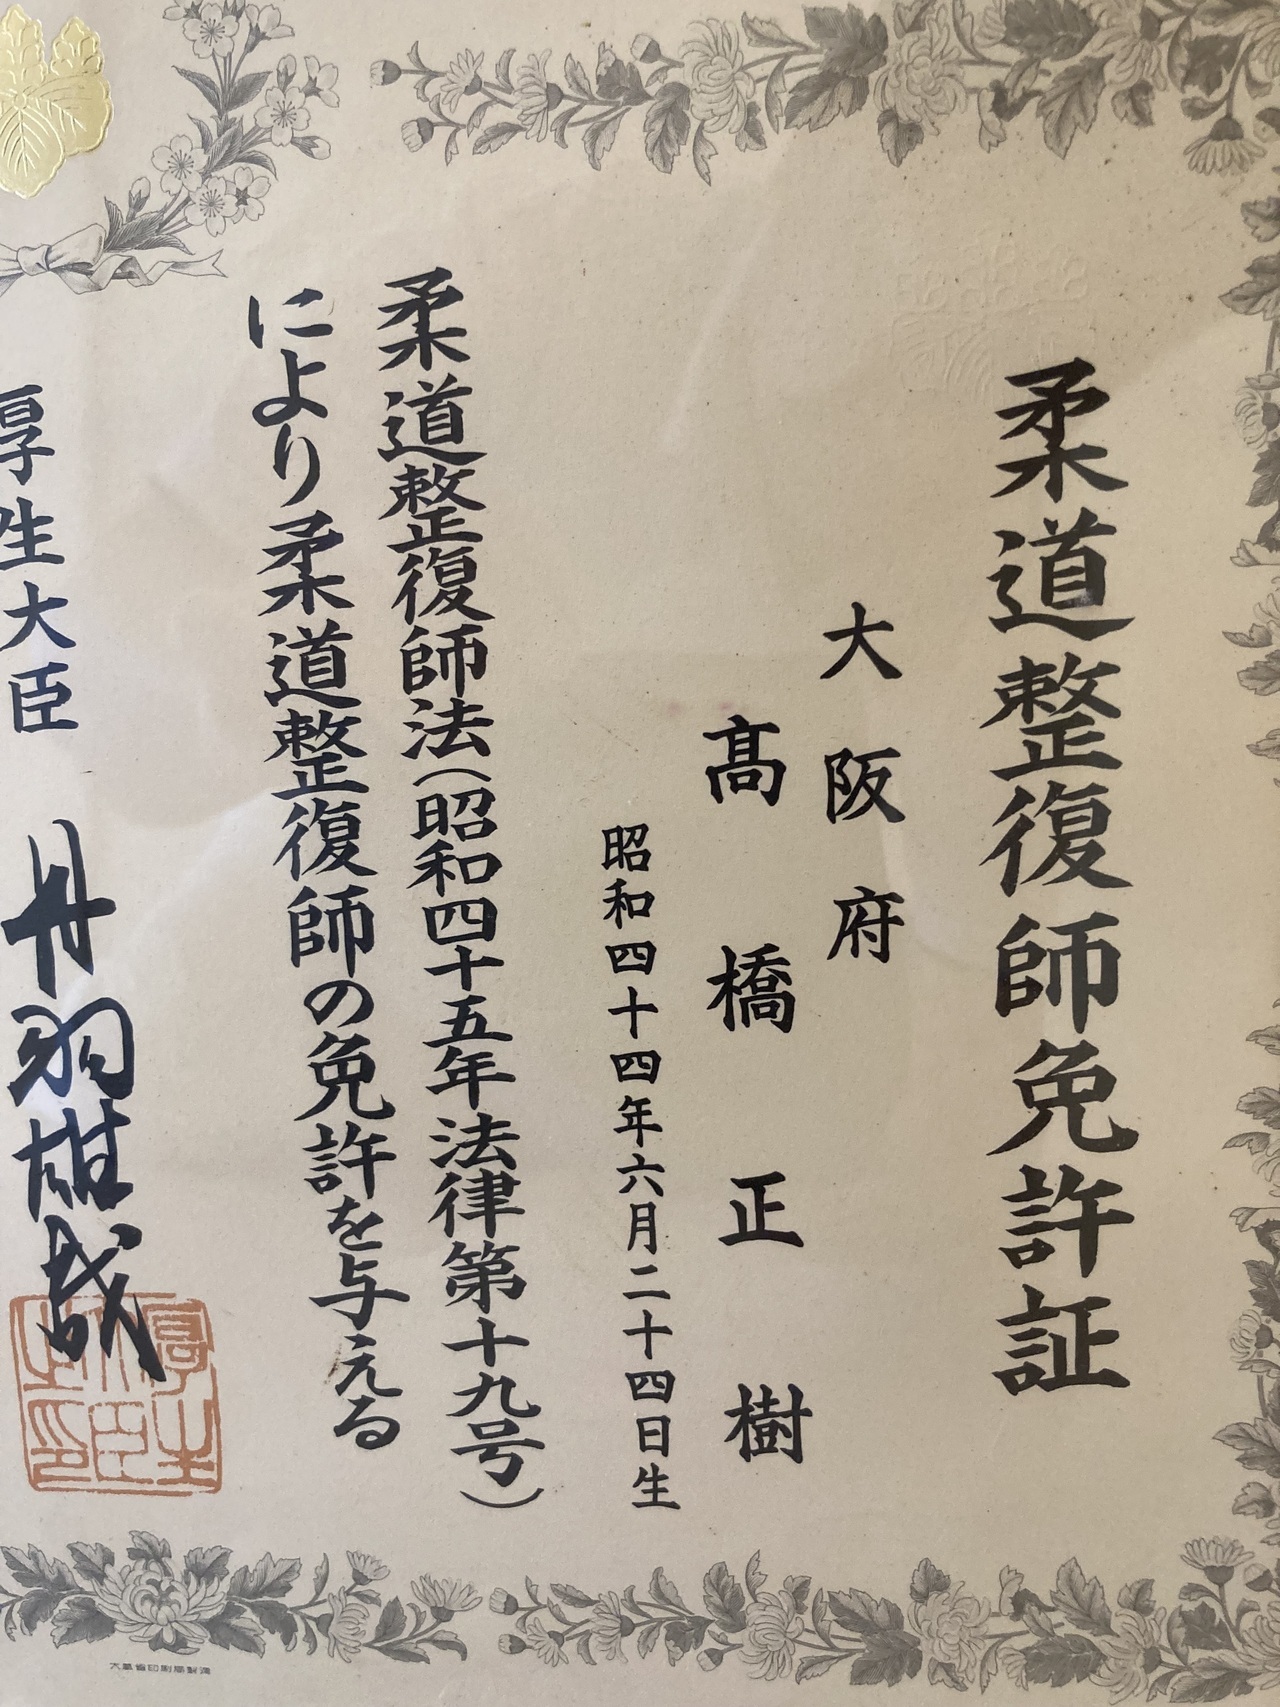 柔道整復師免許証
大阪府
髙橋正樹
昭和四十四年六月二十四日生
柔道整復師法(昭和四十五年法律第十九号)
により柔道整復師の免許を与える
厚生大臣 丹羽雄哉
厚生大臣之印
大蔵省印刷局製造